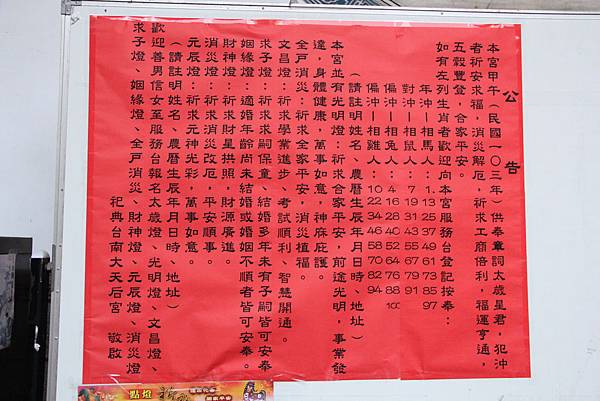 公告
本宮甲午（民國一〇三年）供奉章詞太歲星君，犯沖
者祈安求福，消災解厄，祈求工商倍利，福運亨通，
五穀豐登，合家平安。
如有左列生肖者歡迎向本宮服務台登記按奉：
年沖－相馬人：1.13 25 37 49 61 73 85 97
對沖－相鼠人：7 19 31 43 55 67 79 91
偏沖－相兔人：4 16 28 40 52 64 76 88 100
偏沖－相雞人：10 22 34 46 58 70 82 94
（請註明姓名、農曆生辰年月日時、地址）
本宮並有光明燈：祈求合家平安，前途光明，事業發
達，身體健康，萬事如意，神麻庇護。
全戶消災：祈求全家平安，消災植福。
文昌燈：祈求學業進步、考試順利、智慧開通。
求子燈：祈求求嗣保童、結婚多年未有子嗣皆可安奉
姻緣燈：適婚年齡尚未結婚或婚姻不順者皆可安奉。
財神燈：祈求財星拱照，財源廣進。
消災燈：祈求消災改厄，平安順事。
元辰燈：祈求元神光彩，萬事如意。
（請註明姓名、農曆生辰年月日時、地址）
歡迎善男信女至服務台報名太歲燈、光明燈、文昌燈、
求子燈、姻緣燈、全戶消災、財神燈、元辰燈、消災燈
祀典台南大天后宮 敬啟
點燈